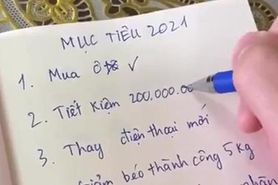 MỤC TIÊU 2021
1. Mua ô tô ✓
2. Tiết kiệm 200.000.00
3. Thay điện thoại mới
giảm béo thành công 5kg